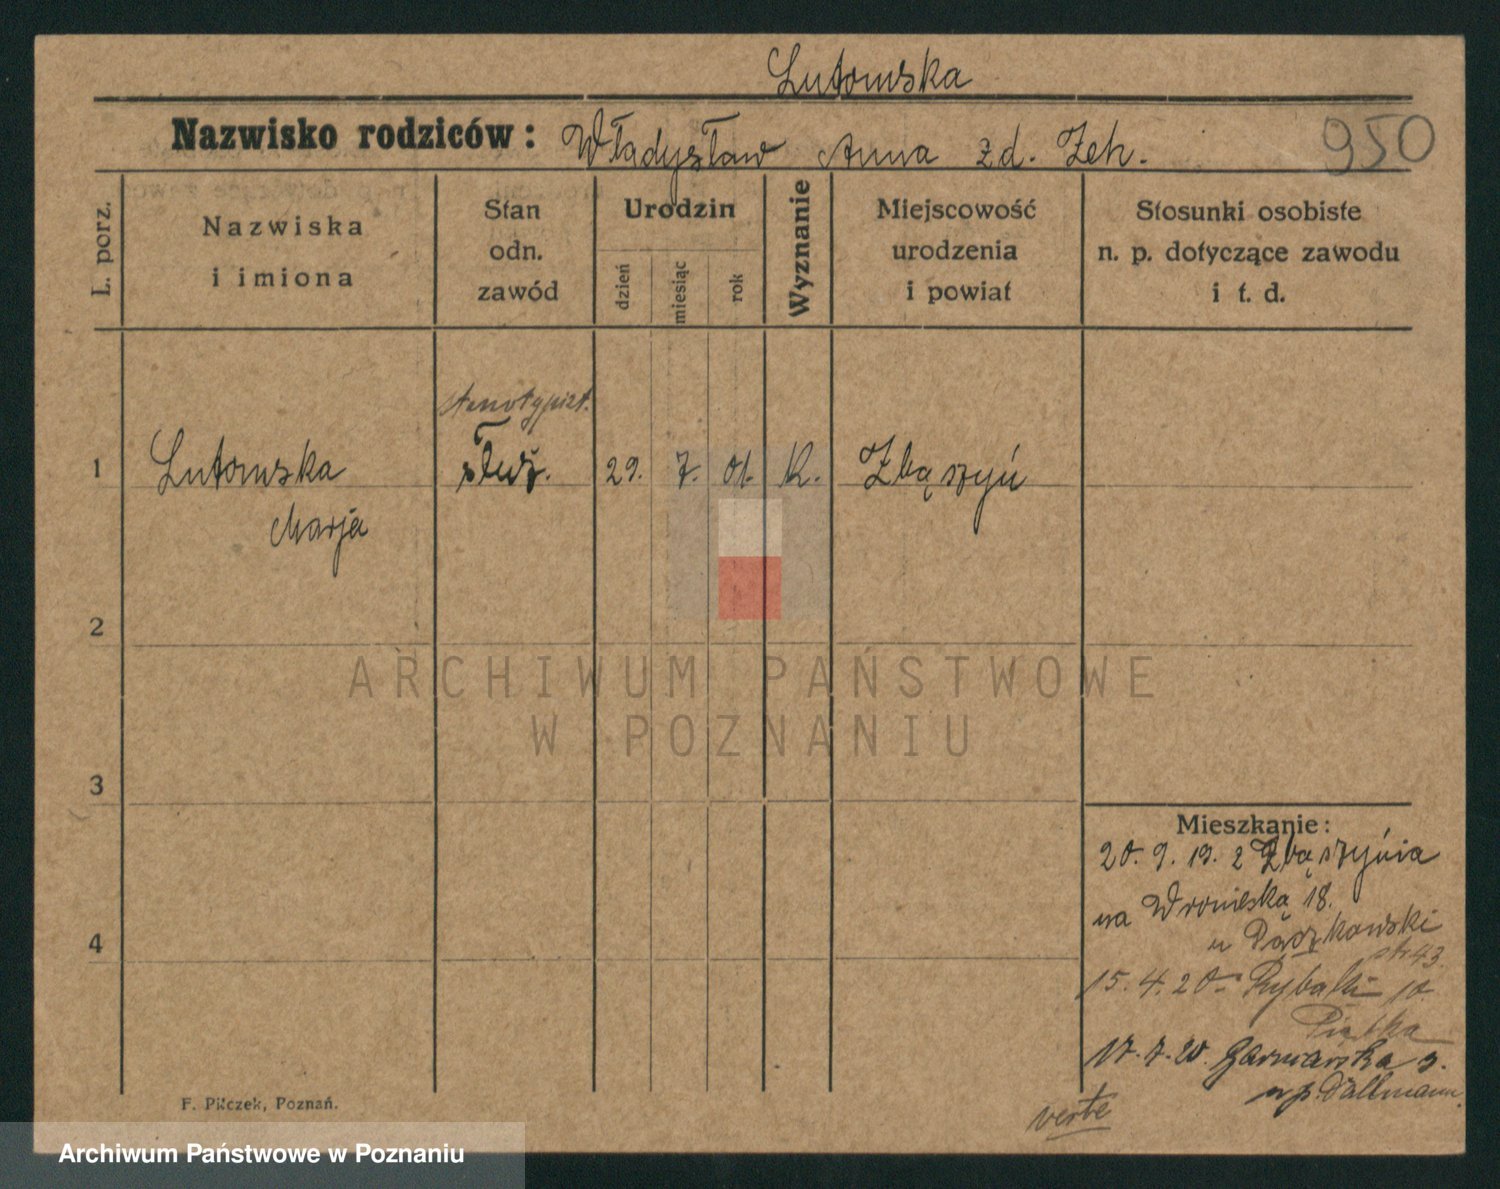 Lutomska
Nazwisko rodziców: Władysław Anna zd. Zeh.
950
L. porz.
Nazwiska
i imiona
Stan
odn.
zawód
Urodzin
dzień
miesiąc
rok
Wyznanie
Miejscowość
urodzenia
i powiat
Stosunki osobiste
n. p. dotyczące zawodu
i t. d.
stenotypist.
1 Lutomska służ. 29. 7. 01. K. Zbąszyń
Marja
2
ARCHIWUM PAŃSTWOWE
W POZNANIU
3
4
Mieszkanie:
20. 9. 19. z Zbąszynia
na Wroniecką 18.
u Pączkowski
str 43.
15. 4. 20 Rybaki 10.
Piątka
17. 7. 20. Garncarska 3.
Dallmann.
verte
F. Pilczek, Poznań.
Archiwum Państwowe w Poznaniu